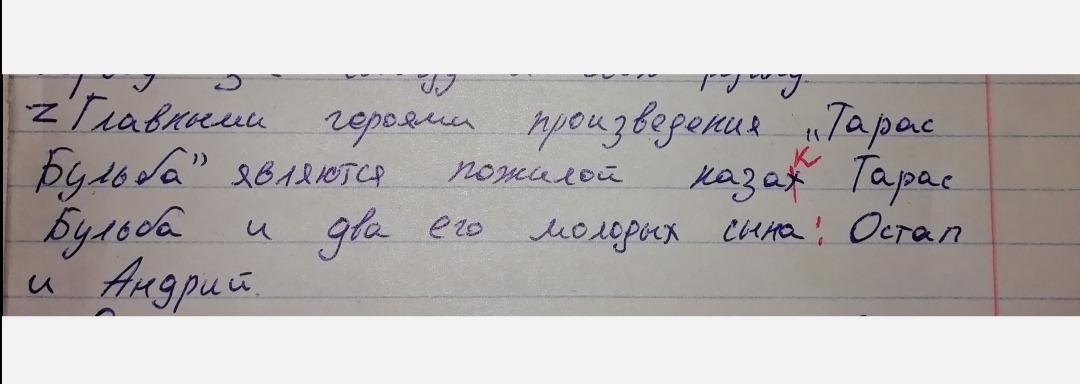 Z Главными героями произведения „Тарас
Бульба” являются пожилой казах Тарас
к
Бульба и два его молодых сына: Остап
и Андрий.